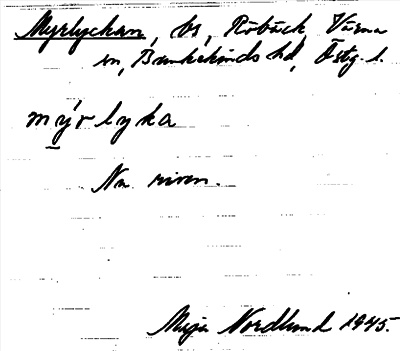 Myrlyckan, bs, Röbäck, Värna
sn, Bankekinds hd, Östg. l.
mýrlyka
Nu riven.
Maja Nordlund 1945.